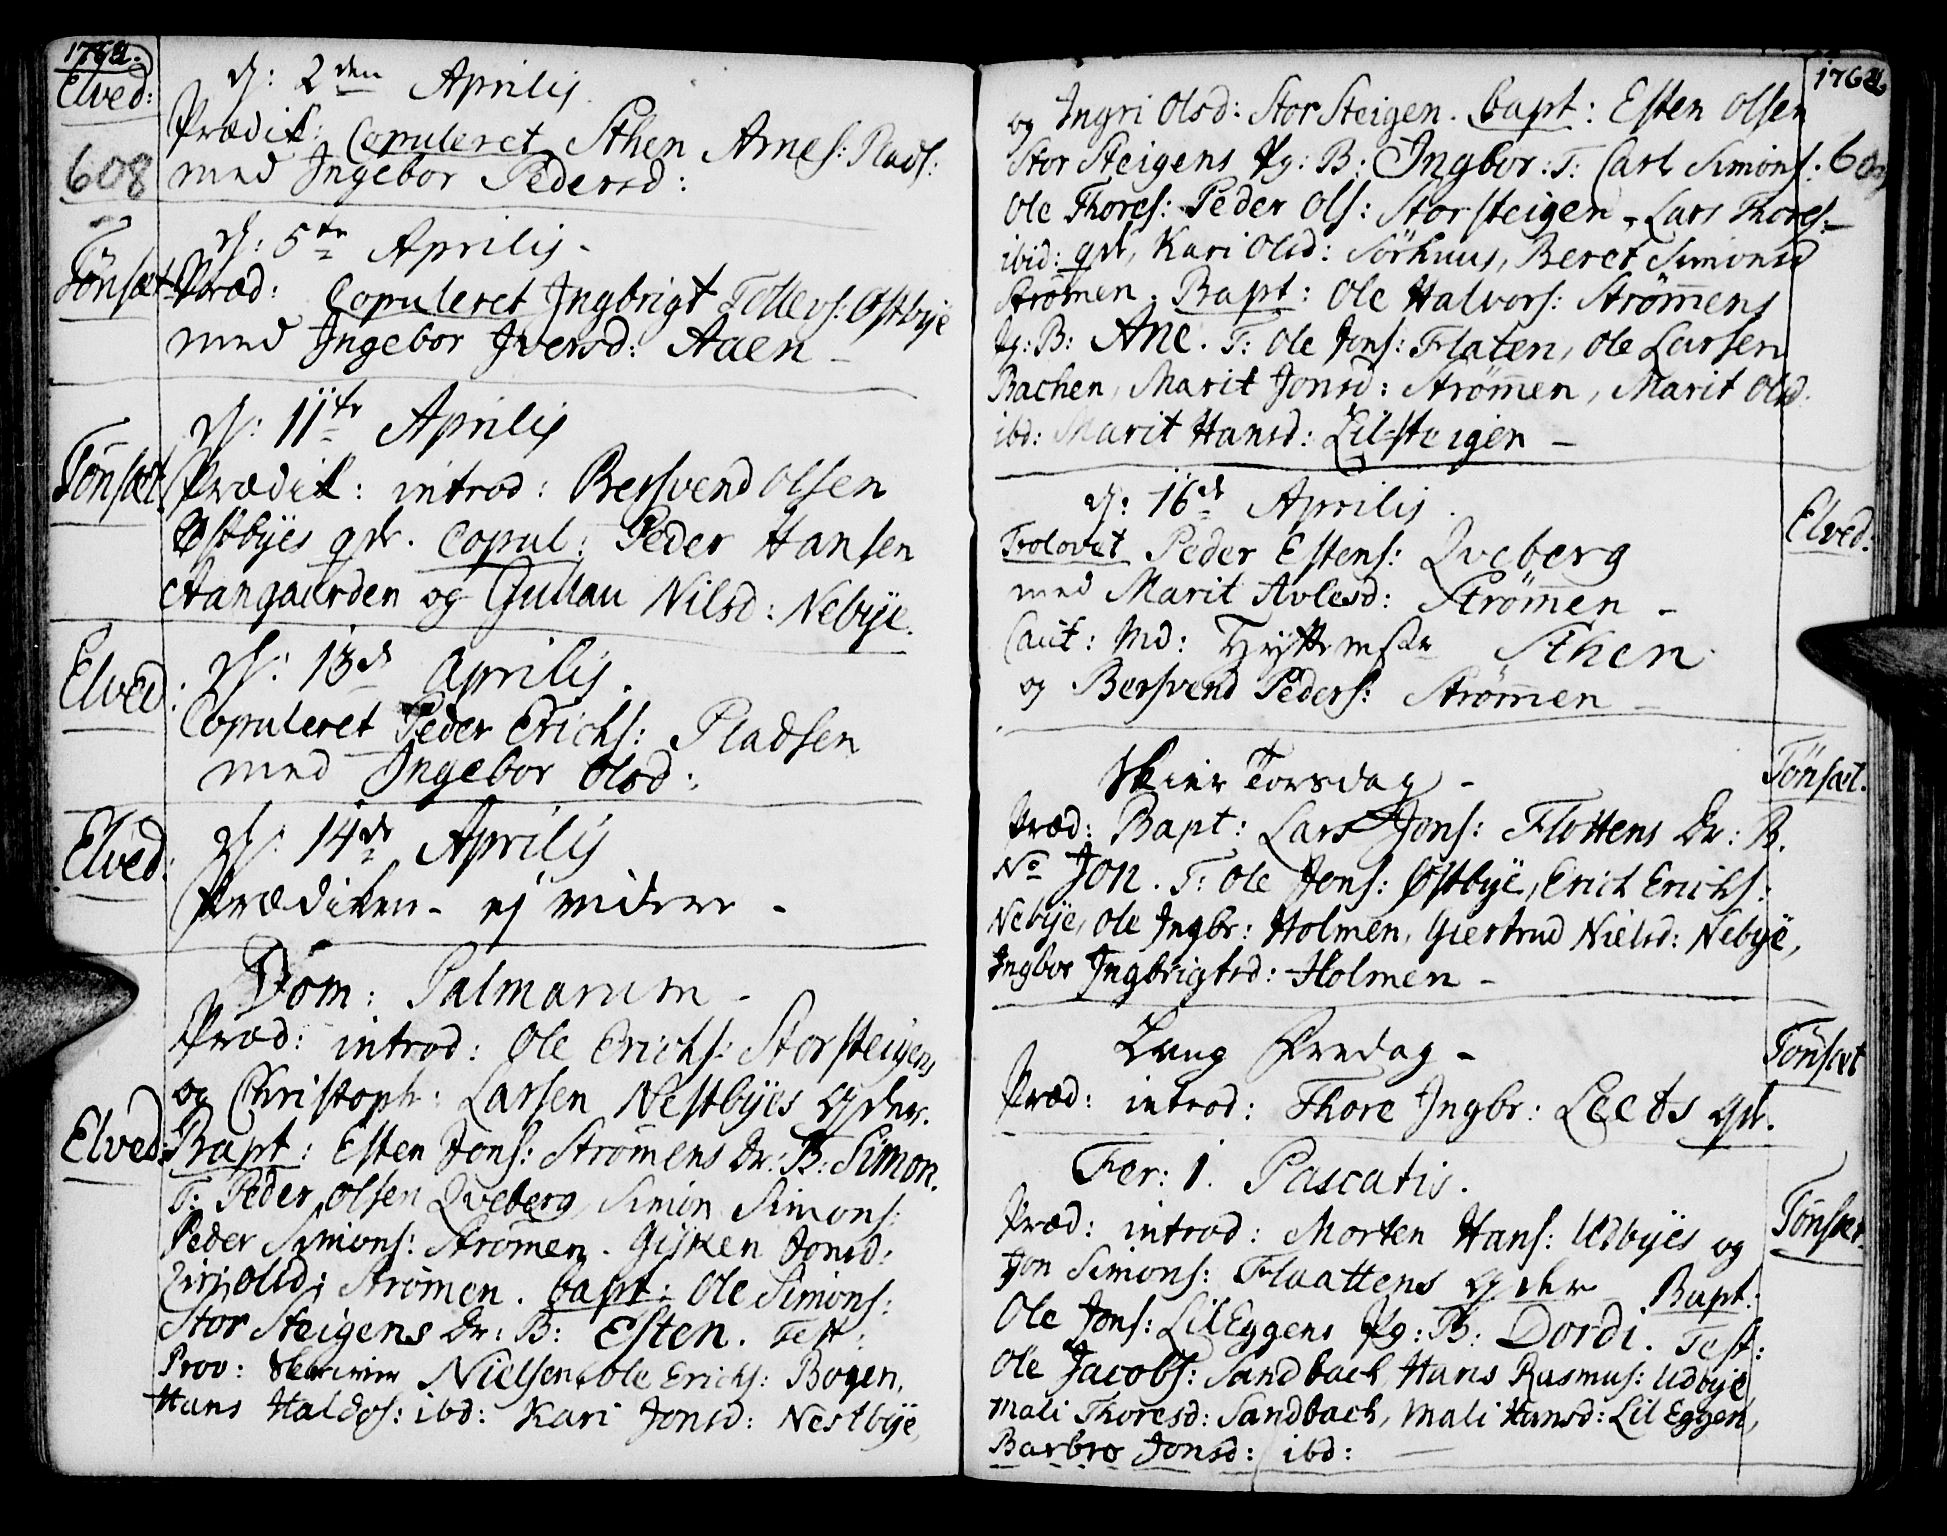 Elved:
608
d: 2den Aprilis
Prædik: Copuleret Sthen Arnes: Plads:
med Ingebor Pedersd:
Tönsæt
d: 5te Aprilis -
Præd: Copuleret Ingbrigt Tollevs: Østbÿe
med Ingebor Iversd: Aaen -
Tönsæt.
d: 11te Aprilis
Prædik: introd: Bersvend Olsen
Østbÿes qdr. Copul: Peder Hansen
Aangaarden og Gullau Nilsd: Nebÿe.
Elved:
d: 13de Aprilis.
Copuleret Peder Erichs: Pladsen
med Ingebor Olsd:
Elved:
d: 14de Aprilis
Prædiken - ej videre -
Elved:
Dom: Palmarum -
Præd: introd: Ole Erichs: Storsteigens
og Christoph: Larsen Nestbÿes qder.
Bapt: Esten Jons: Strömens Dr: B: Simon.
T: Peder Olsen Qveberg, Simon Simons:
Peder Simons: Strömen. Jonsd:
Siri Olsd: Strömen. bapt: Ole Simons:
Stor Steigens Dr: B: Esten. Test:
Prov: Nielsen, Ole Erichs: Bogen,
Hans Haldos: ibd: Kari Jonsd: Nestbÿe,
og Ingri Olsd: Stor Steigen. Bapt: Esten Olsen
Stor Steigens Pg: B: Ingbor. T: Carl Simons:
Ole Thores: Peder Ols: Storsteigen, Lars Thores:
ibid: qdr, Kari Olsd: Sörhuus, Beret Simonsd
Strömen. Bapt: Ole Halvors: Strömens
Pg: B: Ane. T: Ole Jons: Flaten, Ole Larsen
Bachen, Marit Jonsd: Strömen, Marit Olsd.
ibd: Marit Hansd: Lil-steigen -
Elved:
d: 16de Aprilis.
Trolovet Peder Estens: Qveberg
med Marit Avlesd: Strömen -
Caut: Md: Hyttemstr Sthen
og Bersvend Peders: Strömen -
Tönsæt.
Skier Torsdag -
Præd: Bapt: Lars Jons: Flottens Dr: B.
No Jon. T: Ole Jons: Østbÿe, Erich Erichs:
Nebÿe, Ole Ingbr: Holmen, Giertrud Nielsd: Nebÿe,
Ingbor Ingbrigtsd: Holmen -
Tönsæt
Lang Fredag -
Præd: introd: Thore Ingbr: Leets qdr.
Tönsæt.
Fer: 1. Pascatis.
Præd: introd: Morten Hans: Udbÿes og
Jon Simons: Flaattens qder Bapt:
Ole Jons: LilEggens Pg: B: Dordi. Test:
Ole Jacobs: Sandbach, Hans Rasmus: Udbÿe
Mali Thoresd: Sandbach, Mali Hansd: Lil Eggen,
Barbro Jonsd: ibd: